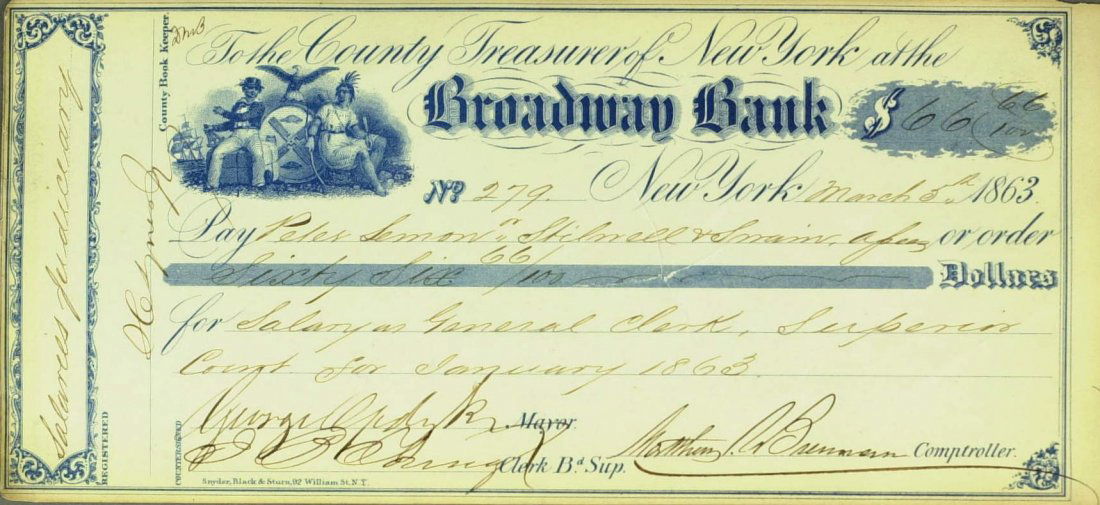 To the County Treasurer of New York at the
Broadway Bank $ 66 66/100
No 279. New York March 5th 1863.
Pay Peter Lemon " Stilwell & Swain, or order
Sixty Six 66/100 Dollars
for Salary as General Clerk, Superior
Court for January 1863.
George Opdyke Mayor.
Clerk Bd Sup.
Matthew T. Brennan Comptroller.
Snyder, Black & Sturn, 92 William St. N.Y.
COUNTERSIGNED
County Book Keeper
REGISTERED
Salaries Judiceary